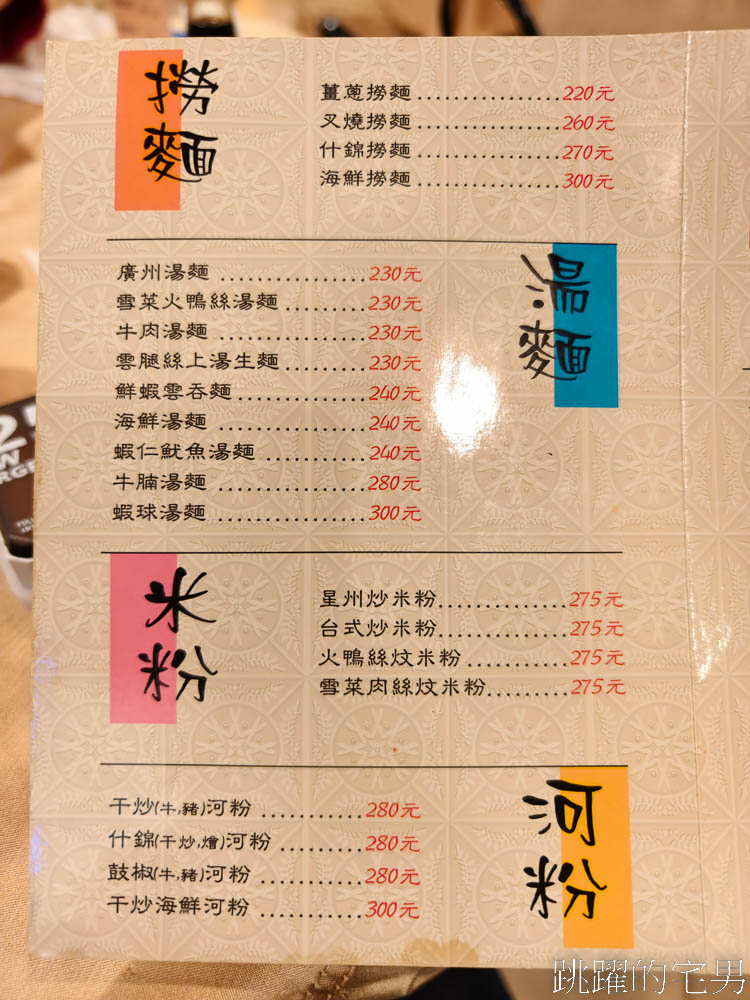 撈麵
薑蔥撈麵................220元
叉燒撈麵................260元
什錦撈麵................270元
海鮮撈麵................300元
湯麵
廣州湯麵................230元
雪菜火鴨絲湯麵.........230元
牛肉湯麵................230元
雲腿絲上湯生麵.........230元
鮮蝦雲吞麵..............240元
海鮮湯麵................240元
蝦仁魷魚湯麵...........240元
牛腩湯麵................280元
蝦球湯麵................300元
米粉
星州炒米粉..............275元
台式炒米粉..............275元
火鴨絲炆米粉...........275元
雪菜肉絲炆米粉.........275元
河粉
干炒(牛,豬)河粉...........280元
什錦(干炒,燴)河粉.........280元
鼓椒(牛,豬)河粉...........280元
干炒海鮮河粉...........300元
跳躍的宅男